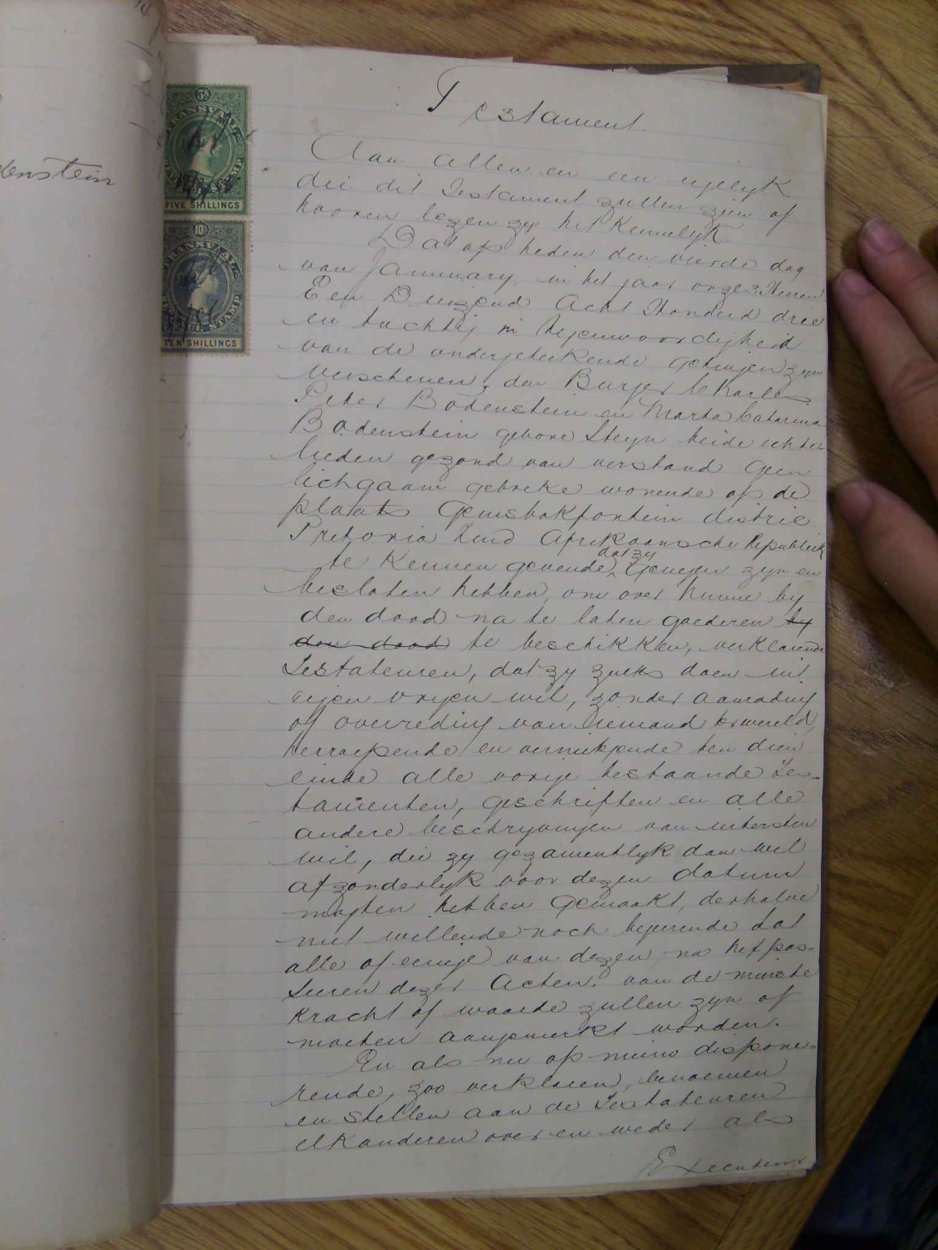 enstein
5
TRANSVAAL
FIVE SHILLINGS
10
TRANSVAAL
TEN SHILLINGS
Testament.
Aan allen en een iegelyk
die dit Testament zullen zien of
hooren lezen zy het Kennelyk.
Dat op heden den vierde dag
van January, in het jaar onzes Heeren
Een Duizend Acht Honderd drie
en tachtig in tegenwoordigheid
van de ondergeteekende getuigen zyn
verschenen, den Burger Charles
Peter Bodenstein en Marta Catarina
Bodenstein gebore Steyn beide echte
lieden gezond van verstand geen
lichgaam gebreke wonende op de
plaats Gemsbokfontein distric
Pretoria Zuid Afrikaansche Republiek
te Kennen gevende dat zy Genegen zyn en
besloten hebben, om over hunne by
den dood na te laten goederen by
den dood te beschikken, verklarende
Testateuren, dat zy zulks doen uit
eigen vryen wil, zonder aanrading
of overreding van iemand ter wereld,
herroepende en vernietigende ten dien
einde alle vorige bestaande Tes-
tamenten, geschriften en alle
andere beschryvingen van uitersten
wil, die zy gezamentlyk dan wel
afzonderlyk voor dezen datum
mogten hebben Gemaakt, derhalve
niet willende noch begerende dat
alle of eenige van dezen, na het pas-
seeren dezer Acten, van de minste
Kracht of waarde zullen zyn of
moeten aangemerkt worden.
En als nu op nieuw dispone-
rende, zoo verklaren, benoemen
en stellen aan de Testateuren
elkanderen over en weder als
Executeur